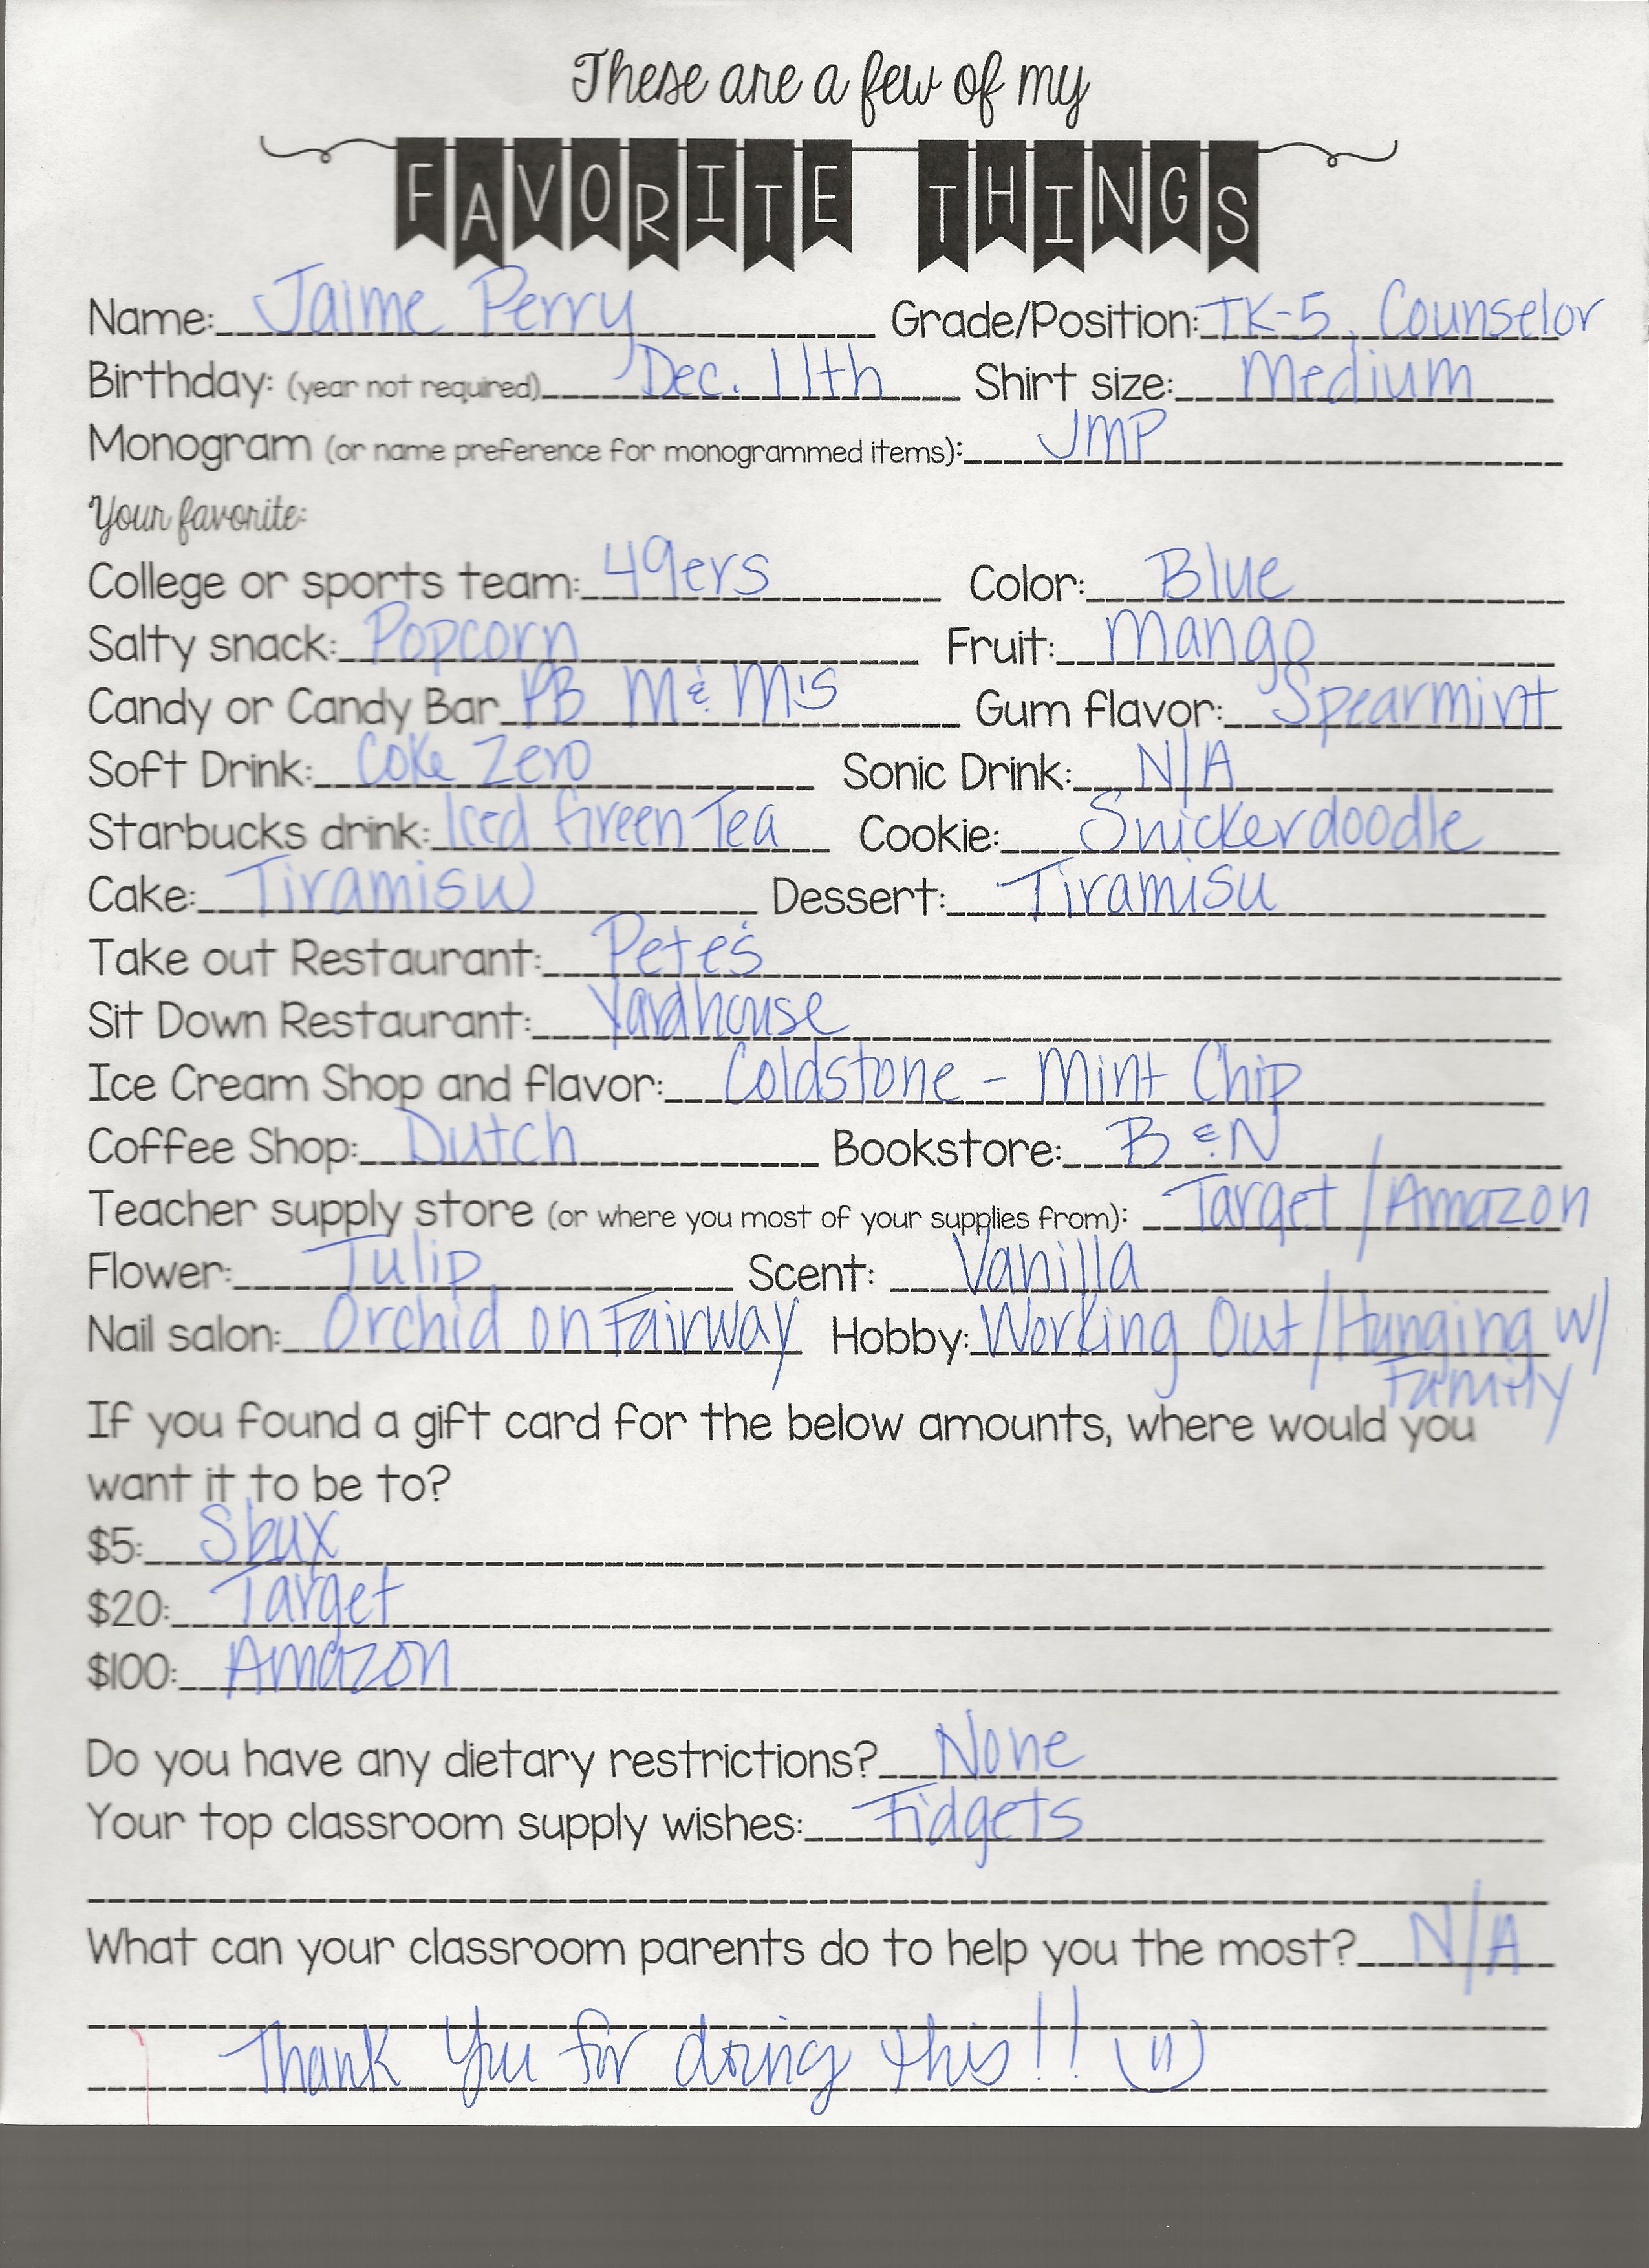 These are a few of my
FAVORITE THINGS
Name: Jaime Perry Grade/Position: TK-5, Counselor
Birthday: (year not required) Dec. 11th Shirt size: Medium
Monogram (or name preference for monogrammed items): JMP
Your favorite:
College or sports team: 49ers Color: Blue
Salty snack: Popcorn Fruit: Mango
Candy or Candy Bar PB M&M's Gum flavor: Spearmint
Soft Drink: Coke Zero Sonic Drink: N/A
Starbucks drink: Iced Green Tea Cookie: Snickerdoodle
Cake: Tiramisu Dessert: Tiramisu
Take out Restaurant: Pete's
Sit Down Restaurant: Yardhouse
Ice Cream Shop and flavor: Coldstone - Mint Chip
Coffee Shop: Dutch Bookstore: B & N
Teacher supply store (or where you most of your supplies from): Target / Amazon
Flower: Tulip Scent: Vanilla
Nail salon: Orchid on Fairway Hobby: Working Out / Hanging w/
Family
If you found a gift card for the below amounts, where would you
want it to be to?
$5: Sbux
$20: Target
$100: Amazon
Do you have any dietary restrictions? None
Your top classroom supply wishes: Fidgets
What can your classroom parents do to help you the most? N/A
Thank You for doing this!!